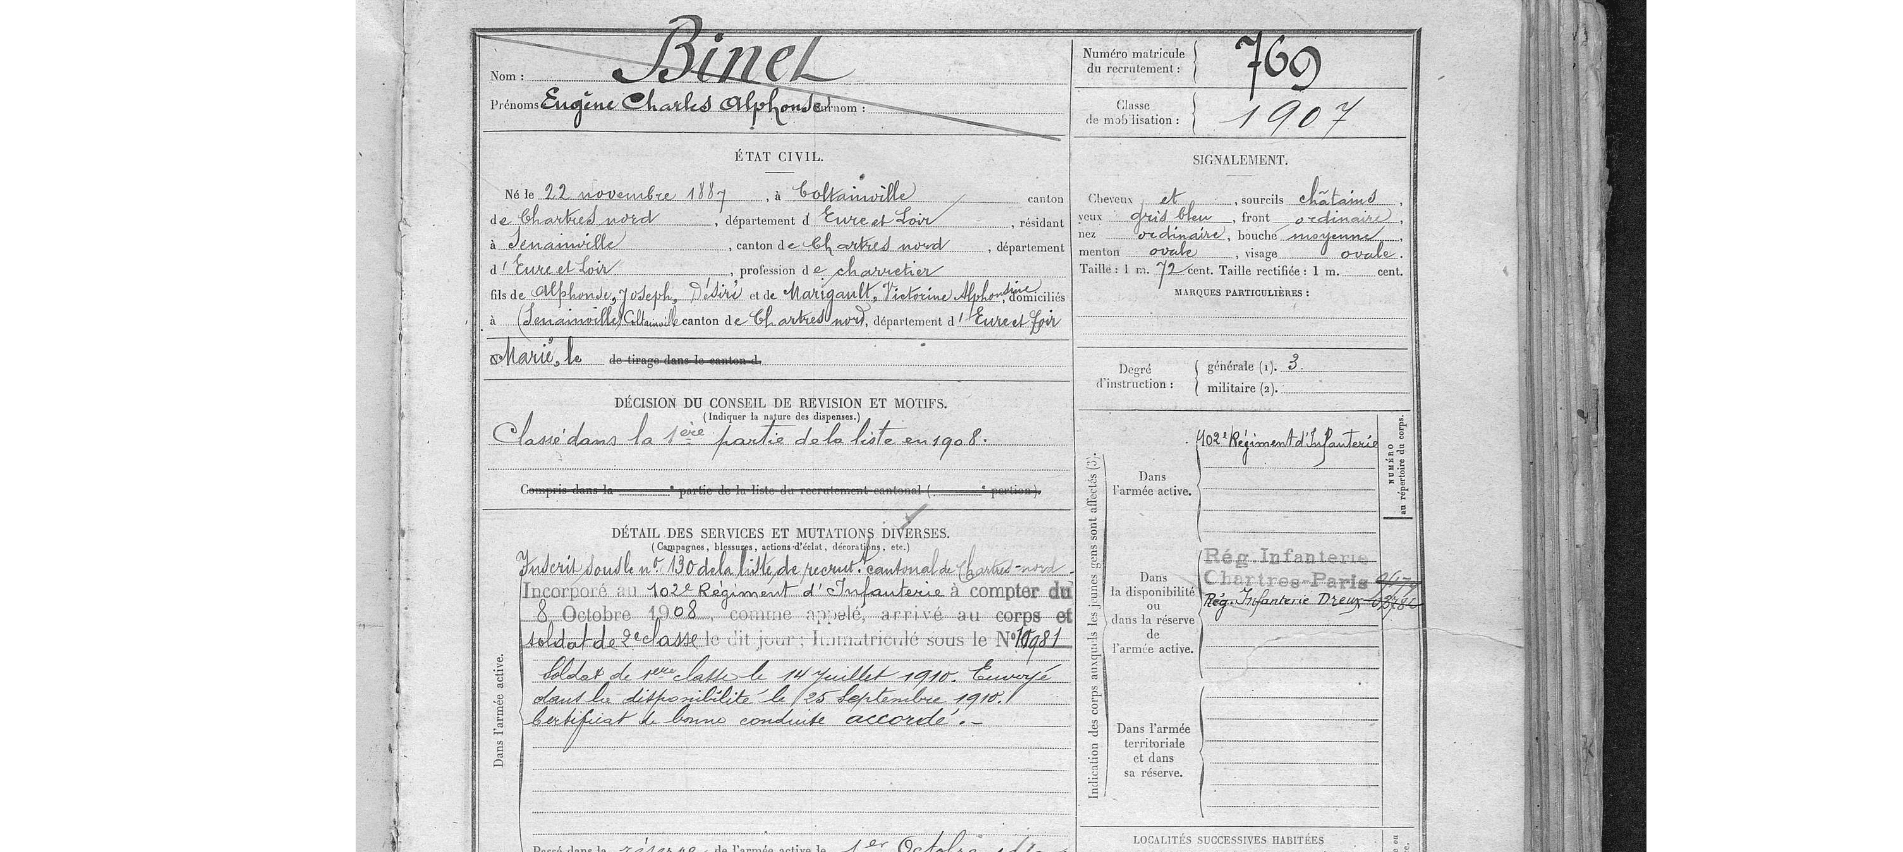 Nom : Binet
Prénoms Eugène Charles Alphonse Surnom :
Numéro matricule
du recrutement : 769
Classe
de mobilisation : 1907
ÉTAT CIVIL.
Né le 22 novembre 1887, à Coltainville canton
de Chartres nord, département d Eure et Loir, résidant
à Senainville, canton de Chartres nord, département
d'Eure et Loir, profession de charretier
fils de Alphonse, Joseph, Désiré et de Marigault, Victorine Alphonsine, domiciliés
à (Senainville) Coltainville canton de Chartres nord, département d'Eure et Loir
Marié, le de tirage dans le canton d
SIGNALEMENT.
Cheveux et, sourcils châtains,
yeux gris bleu, front ordinaire,
nez ordinaire, bouche moyenne,
menton ovale, visage ovale.
Taille : 1 m. 72 cent. Taille rectifiée : 1 m. cent.
MARQUES PARTICULIÈRES :
Degré
d'instruction :
générale (1). 3.
militaire (2).
DÉCISION DU CONSEIL DE REVISION ET MOTIFS.
(Indiquer la nature des dispenses.)
Classé dans la 1ère partie de la liste en 1908.
Compris dans la e partie de la liste du recrutement cantonal ( e portion).
DÉTAIL DES SERVICES ET MUTATIONS DIVERSES.
(Campagnes, blessures, actions d'éclat, décorations, etc.)
Dans l'armée active.
Inscrit sous le n° 130 de la liste de recrut.t cantonal de Chartres-nord.
Incorporé au 102e Régiment d'Infanterie à compter du
8 Octobre 1908, comme appelé, arrivé au corps et
soldat de 2e classe le dit jour ; Immatriculé sous le N° 10981
Soldat de 1ere classe le 14 Juillet 1910. Envoyé
dans la disponibilité le 25 Septembre 1910.
Certificat de bonne conduite accordé.-
Passé dans la réserve de l'armée active le 1er Octobre
Indication des corps auxquels les jeunes gens sont affectés (3).
NUMÉRO
au répertoire du corps.
Dans
l'armée active.
102e Régiment d'Infanterie
Dans
la disponibilité
ou
dans la réserve
de
l'armée active.
Rég. Infanterie
Chartres-Paris
Rég. Infanterie Dreux
Dans l'armée
territoriale
et dans
sa réserve.
LOCALITÉS SUCCESSIVES HABITÉES